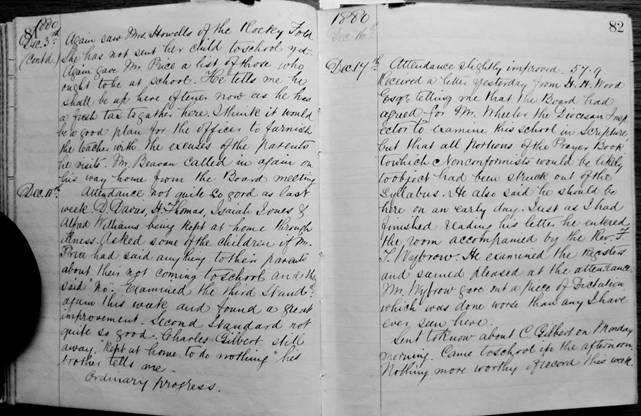 81
1880
Dec. 3rd
(contd.)
Again saw Mrs Howells of the Rocky Fold
She has not sent her child to school yet.
Again gave Mr. Price a list of those who
ought to be at school. He tells me he
shall be up here oftener now as he has
a fresh tax to gather here. I think it would
be a good plan for the officer to furnish
the teacher with the excuses of the parents
he visits. Mr. Beavan called in again on
his way home from the Board meeting
Dec. 10th
Attendance not quite so good as last
week. D. Davies, H. Thomas, Isaiah Jones &
Alfred Williams being kept at home through
illness. Asked some of the children if Mr.
Price had said anything to their parents
about their not coming to school and they
said no. Examined the third Standd.
again this week and found a great
improvement. Second Standard not
quite so good. Charles Gilbert still
away. "Kept at home to do nothing" his
brother tells me.
Ordinary progress.
1880
82
Dec. 16th
Dec. 17th
Attendance slightly improved. 57.9
Received a letter yesterday from H. H. Wood
Esqre. telling me that the Board had
agreed for Mr. Wheeler the Diocesan Insp
ector to examine this school in Scripture
but that all Portions of the Prayer Book
to which Nonconformists would be likely
to object had been struck out of the
Syllabus. He also said he should be
here on an early day. Just as I had
finished reading his letter he entered
the room accompanied by the Rev. F.
S. Wybrow. He examined the Registers
and seemed pleased at the attendance.
Mr. Wybrow gave out a piece of Dictation
which was done worse than any I have
ever saw here.
Sent to know about C. Gilbert on Monday
morning. Came to school in the afternoon.
Nothing more worthy of record this week.